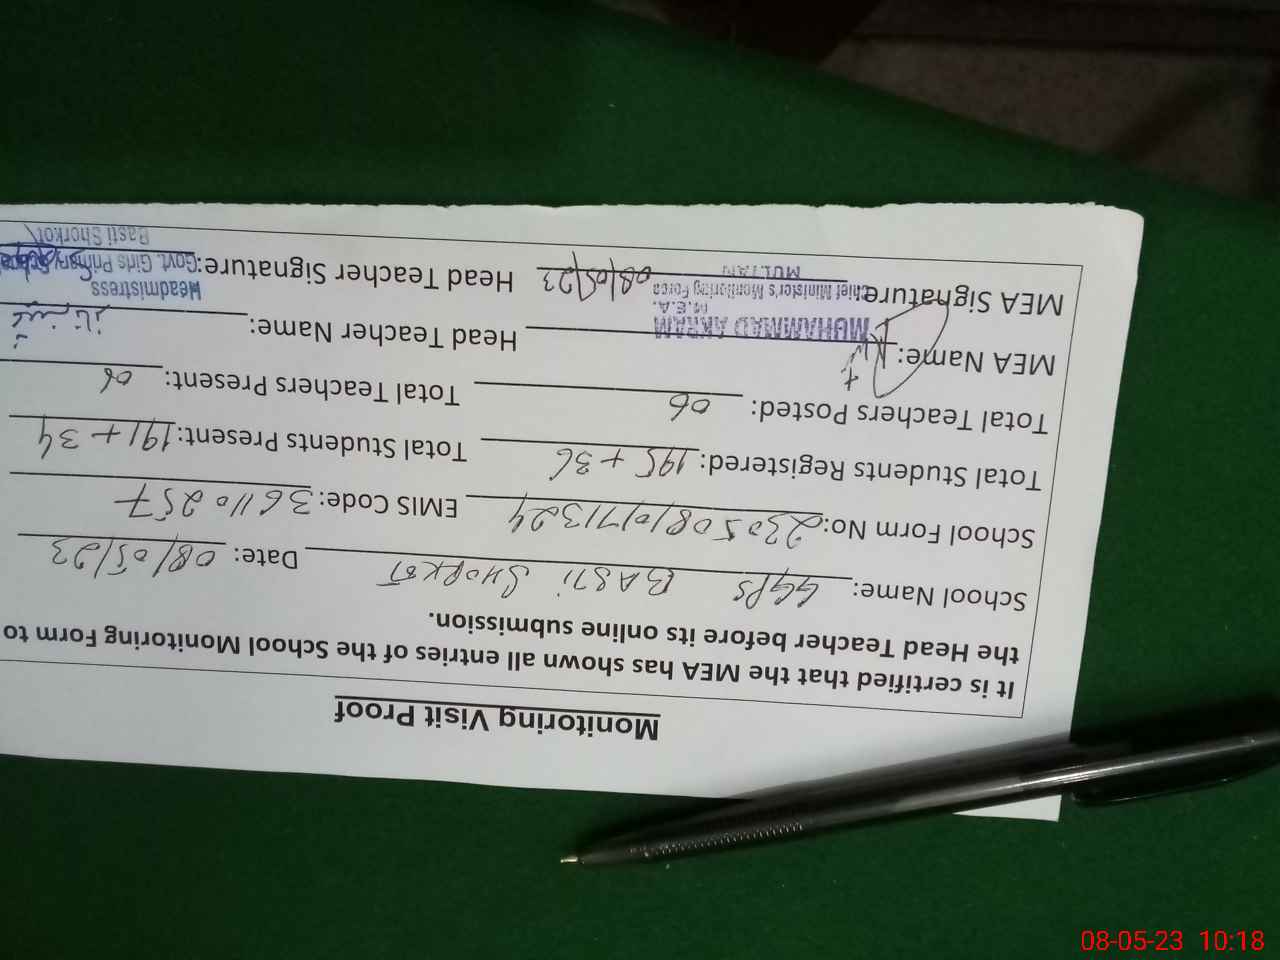 Monitoring Visit Proof
It is certified that the MEA has shown all entries of the School Monitoring Form to
the Head Teacher before its online submission.
School Name: GGPS BASTI SHORKOT Date: 08/05/23
School Form No: 2305081071324 EMIS Code: 36110257
Total Students Registered: 195 + 36 Total Students Present: 191 + 34
Total Teachers Posted: 06 Total Teachers Present: 06
MEA Name: Head Teacher Name:
MUHAMMAD AKRAM
M.E.A.
Chief Minister's Monitoring Force
MULTAN
MEA Signature: 08/05/23 Head Teacher Signature:
Headmistress
Govt. Girls Primary
Basti Shorkot
08-05-23 10:18